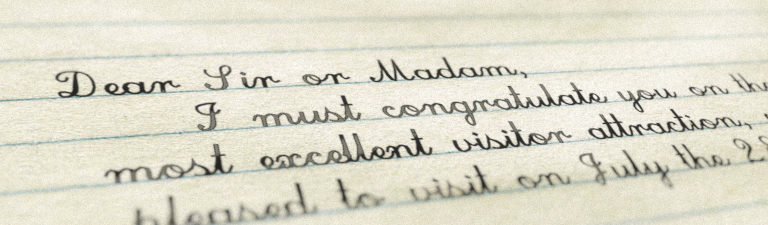 Dear Sir or Madam,
I must congratulate you on
most excellent visitor attraction,
pleased to visit on July the